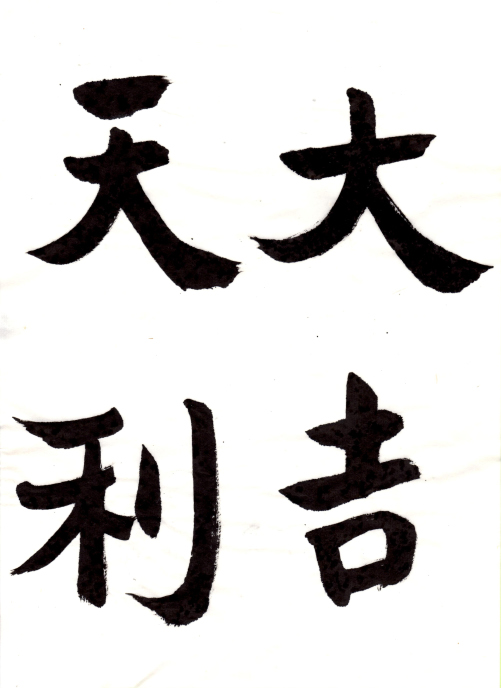 大吉
天利